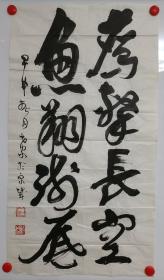 鹰击长空
鱼翔浅底
甲申九月